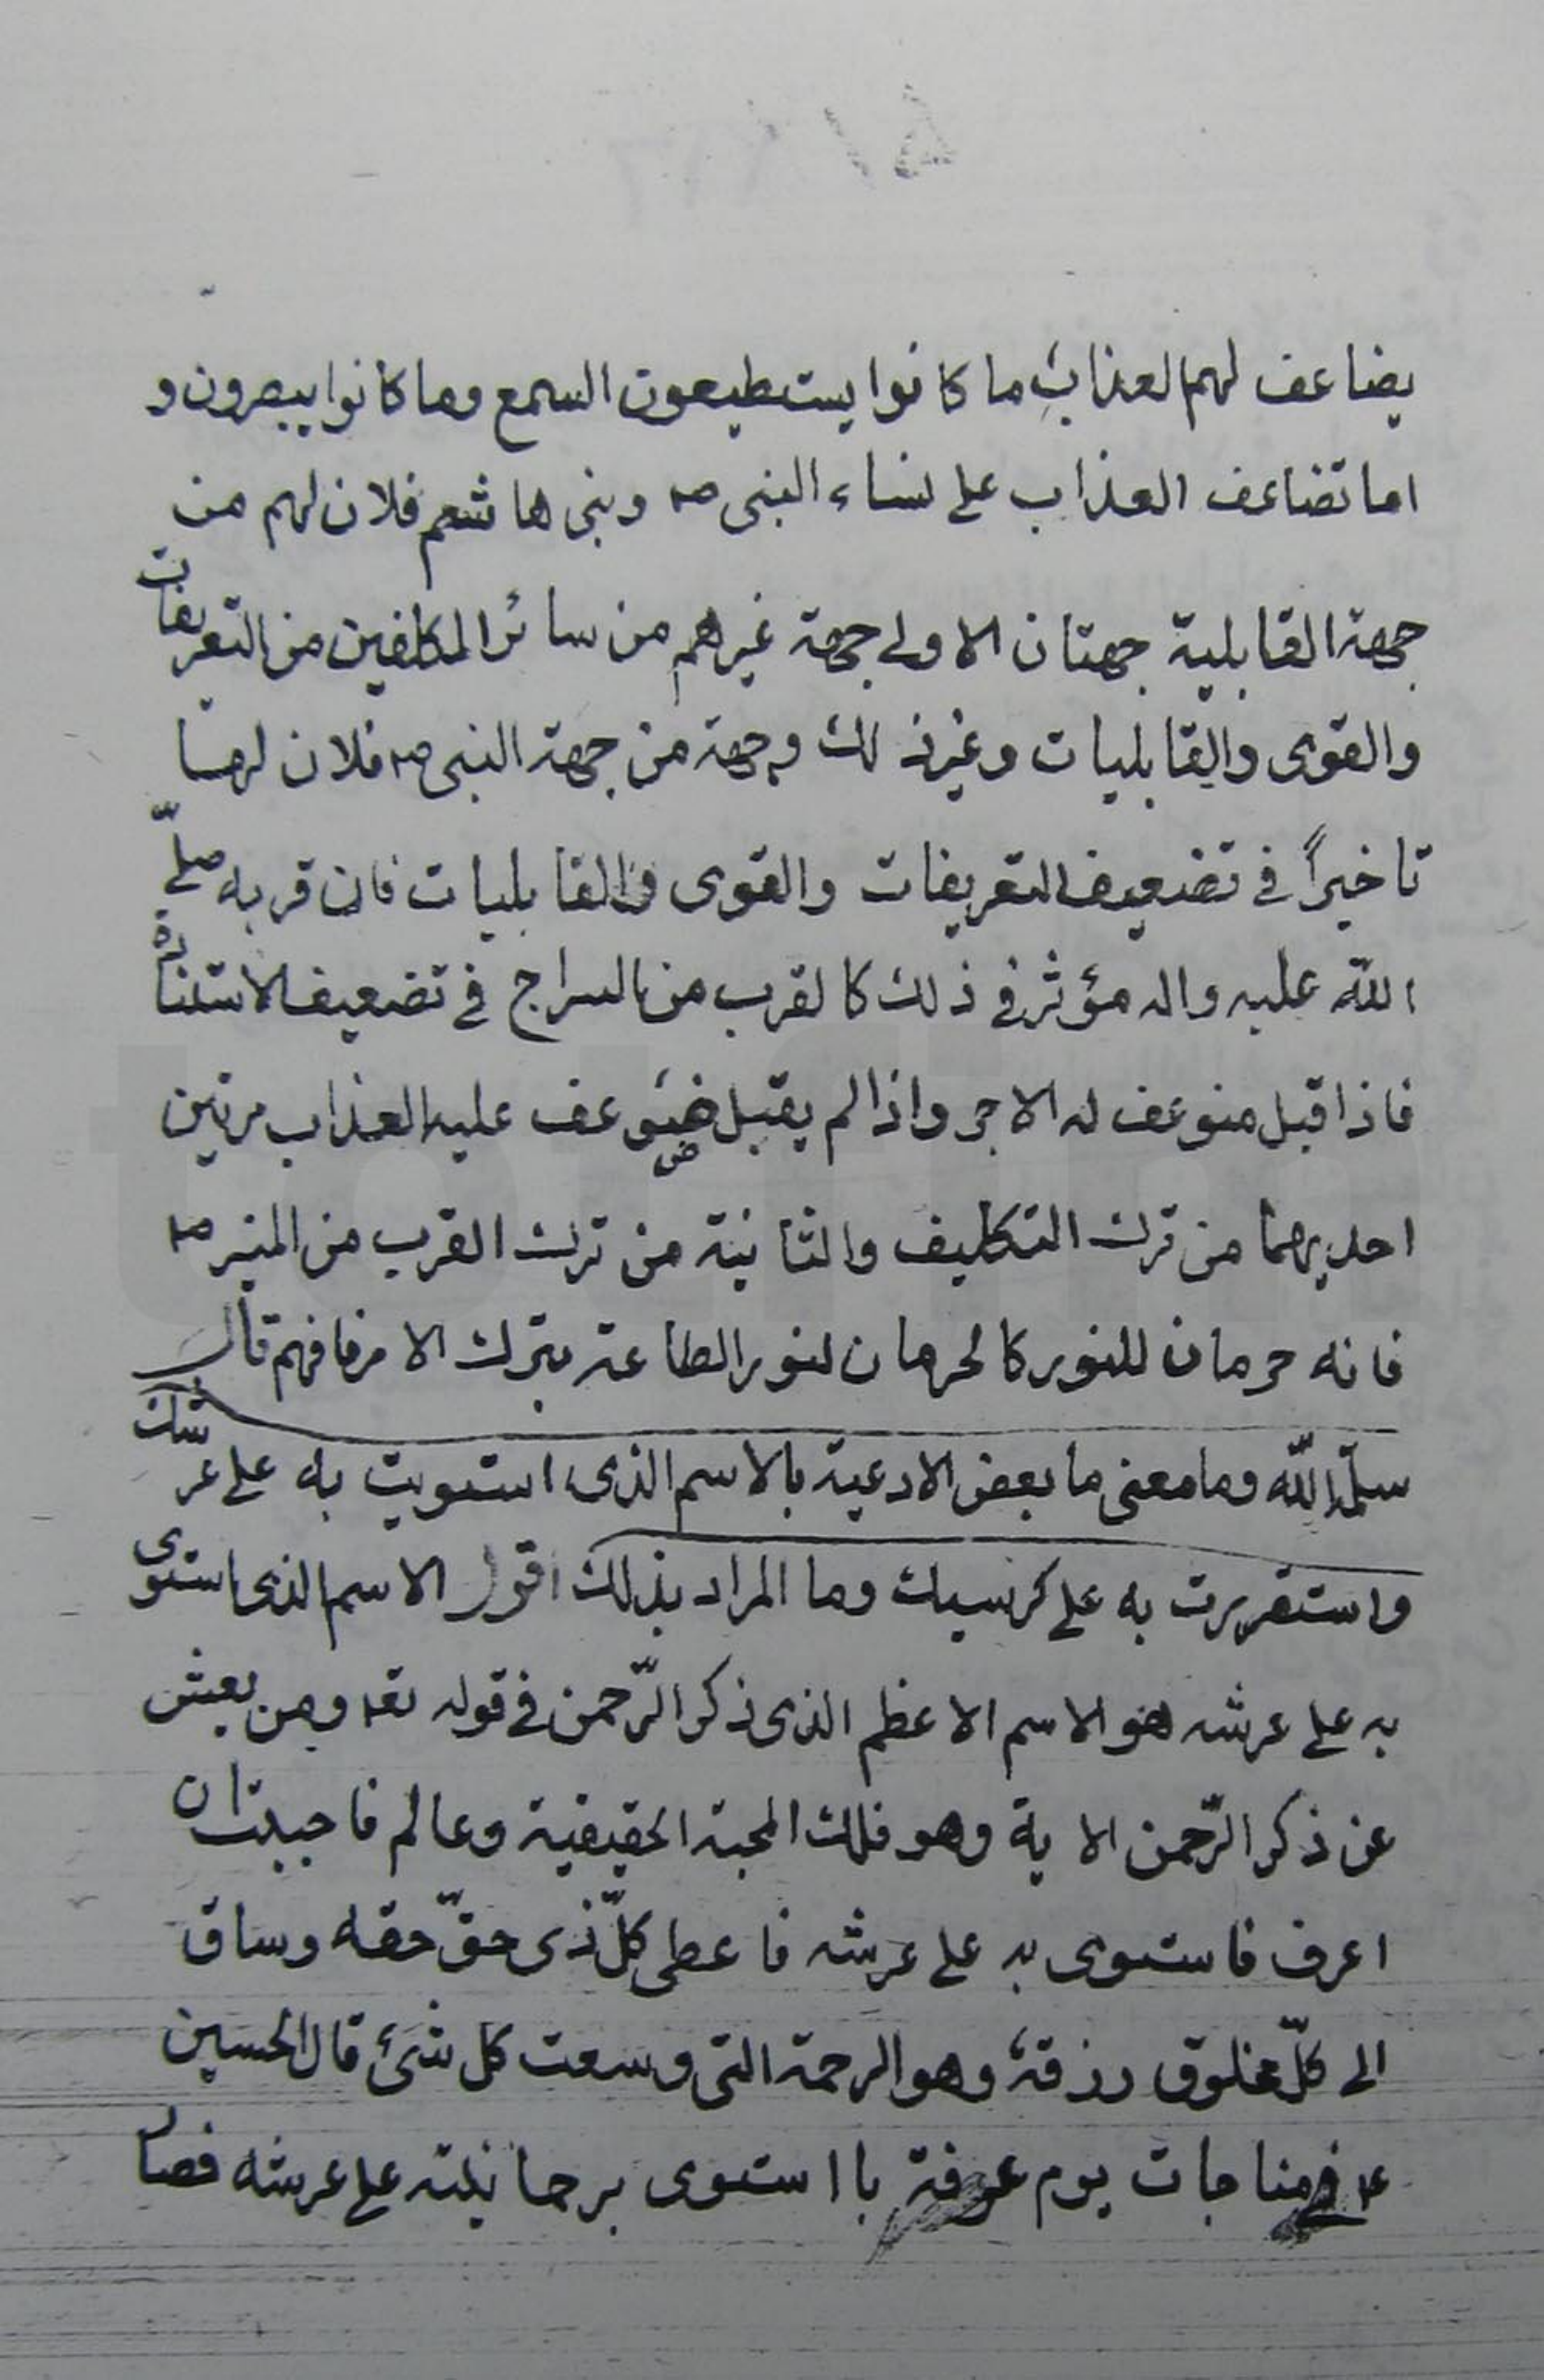 يضاعف لهم العذاب ما كانوا يستطيعون السمع وما كانوا يبصرون و
اما تضاعف العذاب على نساء النبى ص وبنى هاشم فلان لهم من
جهة القابلية جهتان الاولى جهة غيرهم من سائر المكلفين من التعريفات
والقوى والقابليات وغير ذلك وجهة من جهة النبى ص فلان لها
تاخيراً فى تضعيف التعريفات والقوى والقابليات فان قربه صلّى
اللّه عليه واله مؤثر فى ذلك كالقرب من السراج فى تضعيف الاستنارة
فاذا قبل ضوعف له الاجر واذا لم يقبل ضوعف عليه العذاب مرتين
احديهما من ترك التكليف والثانية من ترك القرب من المنير ص
فانه حرمان للنور كالحرمان لنور الطاعة بترك الامر فافهم قال
سلمّه اللّه وما معنى ما بعض الادعية بالاسم الذى استويت به على عرشك
واستقررت به على كرسيك وما المراد بذلك اقول الاسم الذى استوى
به على عرشه هو الاسم الاعظم الذى ذكر الرّحمن فى قوله تعا ومن يعش
عن ذكر الرّحمن الاية وهو فلك المحبة الحقيقية وعالم فاحببت ان
اعرف فاستوى به على عرشه فاعطى كلّ ذى حقّ حقه وساق
الى كلّ مخلوق رزقه وهو الرحمة التى وسعت كل شئ قال الحسين
ع فى مناجات يوم عرفة يا استوى برحمانيته على عرشه فصار